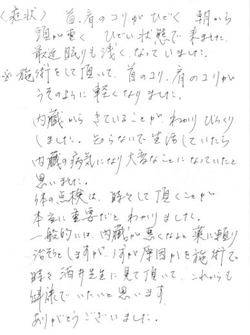 (症状) 首、肩のコリがひどく 朝から
頭が重く ひどい状態で来ました。
最近眠りも浅くなっていました。
施術をして頂いて、首のコリ、肩のコリが
うそのように軽くなりました。
内蔵からきていることがわかりびっくり
しました。知らないで生活していたら
内蔵の病気になり大変なことになっていたと
思いました。
体の点検は、時々して頂くことが
本当に重要だとわかりました。
一般的には、内蔵が悪くなると薬に頼り
治そうとしますが、まず原因から施術で
時々酒井先生に見て頂いて、これからも
健康でいたいと思います。
ありがとうございました。